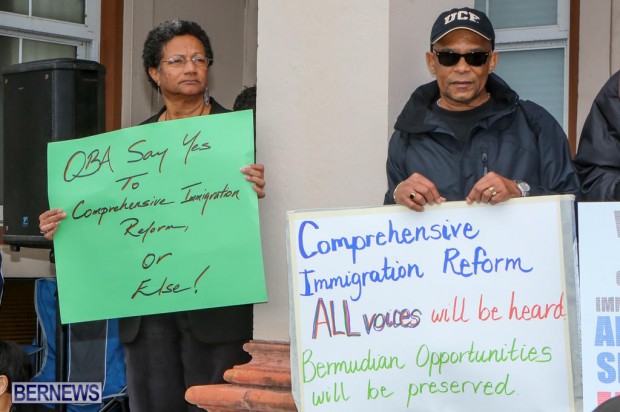 UCF
QBA Say Yes
To
Comprehensive Immigration
Reform,
or
Else!
Comprehensive
Immigration Reform
ALL voices will be heard.
Bermudian Opportunities
will be preserved.
IMM
BERNEWS